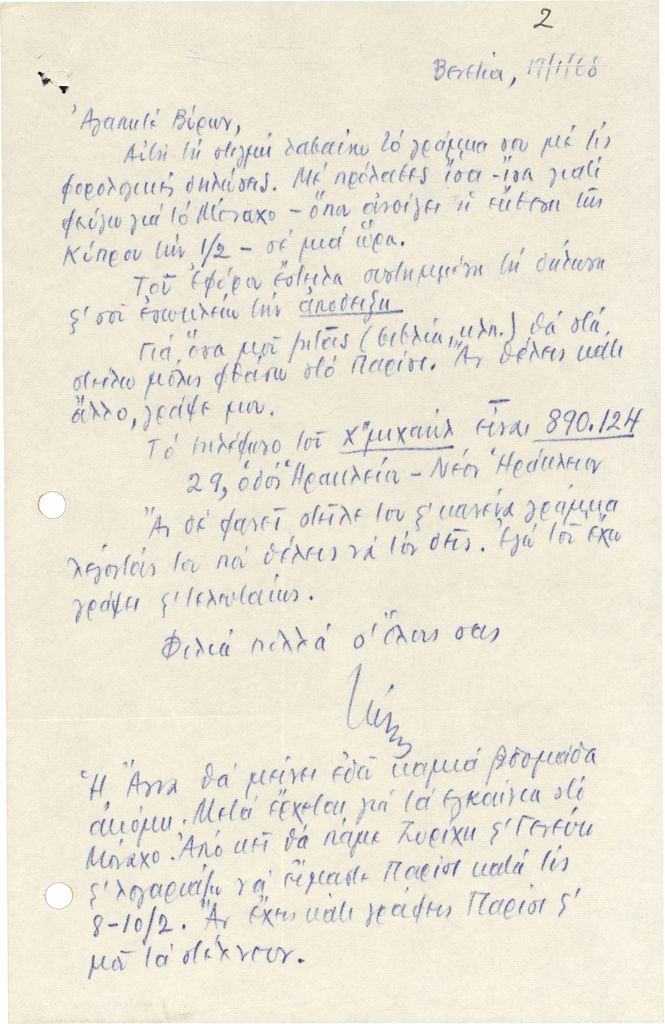 2
Βενετία, 17/1/68
Ἀγαπητέ Βύρων,
Αὐτή τή στιγμή λαβαίνω τό γράμμα σου μέ τίς
φορολογικές δηλώσεις. Μέ πρόλαβες ἴσα-ἴσα γιατί
φεύγω γιά τό Μόναχο - ὅπου ἀνοίγει ἡ ἔκθεση τῆς
Κύπρου τήν 1/2 - σέ μιά ὥρα.
Τοῦ Ἐφόρου ἔστειλα συστημμένη τή δήλωση
κ' σοῦ ἐσωκλείω τήν ἀπόδειξη
Γιά ὅσα μοῦ ζητᾶς (βιβλία, κλπ.) θά στά
στείλω μόλις φθάσω στό Παρίσι. Ἄν θέλεις κάτι
ἄλλο, γράψε μου.
Τό τηλέφωνο τοῦ Χ"μιχαήλ εἶναι 890.124
29, ὁδός Ἡρακλείου - Νέον Ἡράκλειον
Ἄν σέ φανεῖ στεῖλε του κ' κανένα γράμμα
λέγοντάς του πού θέλεις νά τόν δεῖς. Ἐγώ τοῦ ἔχω
γράψει κ' τελευταίως.
Φιλιά πολλά σ' ὅλους σας
Ἡ Ἄννα θά μείνει ἐδῶ καμμιά βδομάδα
ἀκόμη. Μετά ἔρχεται γιά τά ἐγκαίνια στό
Μόναχο. Ἀπό κεῖ θά πᾶμε Ζυρίχη κ' Γενεύη
κ' λογαριάζω νά εἴμαστε Παρίσι κατά τίς
8-10/2. Ἄν ἔχεις κάτι γράψεις Παρίσι κ'
μᾶ τά στέλνουν.